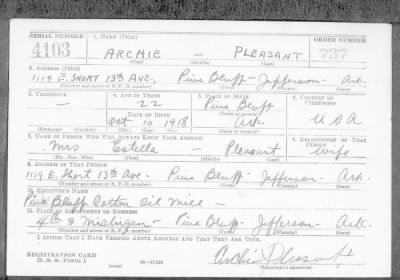 SERIAL NUMBER 1. NAME (Print) ORDER NUMBER
4103 ARCHIE — PLEASANT
(First) (Middle) (Last)
2. ADDRESS (Print)
1119 E. SHORT 13TH AVE. Pine Bluff - Jefferson - Ark.
(Number and street or R. F. D. number) (Town) (County) (State)
3. TELEPHONE 4. AGE IN YEARS 5. PLACE OF BIRTH 6. COUNTRY OF CITIZENSHIP
— 22 Pine Bluff
DATE OF BIRTH (Town or county)
Oct 10 1918 Ark. USA
(Exchange) (Number) (Mo.) (Day) (Yr.) (State or country)
7. NAME OF PERSON WHO WILL ALWAYS KNOW YOUR ADDRESS 8. RELATIONSHIP OF THAT PERSON
Mrs Estella — Pleasant Wife
(Mr., Mrs., Miss) (First) (Middle) (Last)
9. ADDRESS OF THAT PERSON
1119 E. Short 13th Ave - Pine Bluff - Jefferson - Ark.
(Number and street or R. F. D. number) (Town) (County) (State)
10. EMPLOYER'S NAME
Pine Bluff Cotton Oil Mill -
11. PLACE OF EMPLOYMENT OR BUSINESS
4th & Michigan - Pine Bluff - Jefferson - Ark.
(Number and street or R. F. D. number) (Town) (County) (State)
I AFFIRM THAT I HAVE VERIFIED ABOVE ANSWERS AND THAT THEY ARE TRUE.
REGISTRATION CARD
D. S. S. FORM 1 (over) 16—17105 Archie Pleasant
(Registrant's signature)